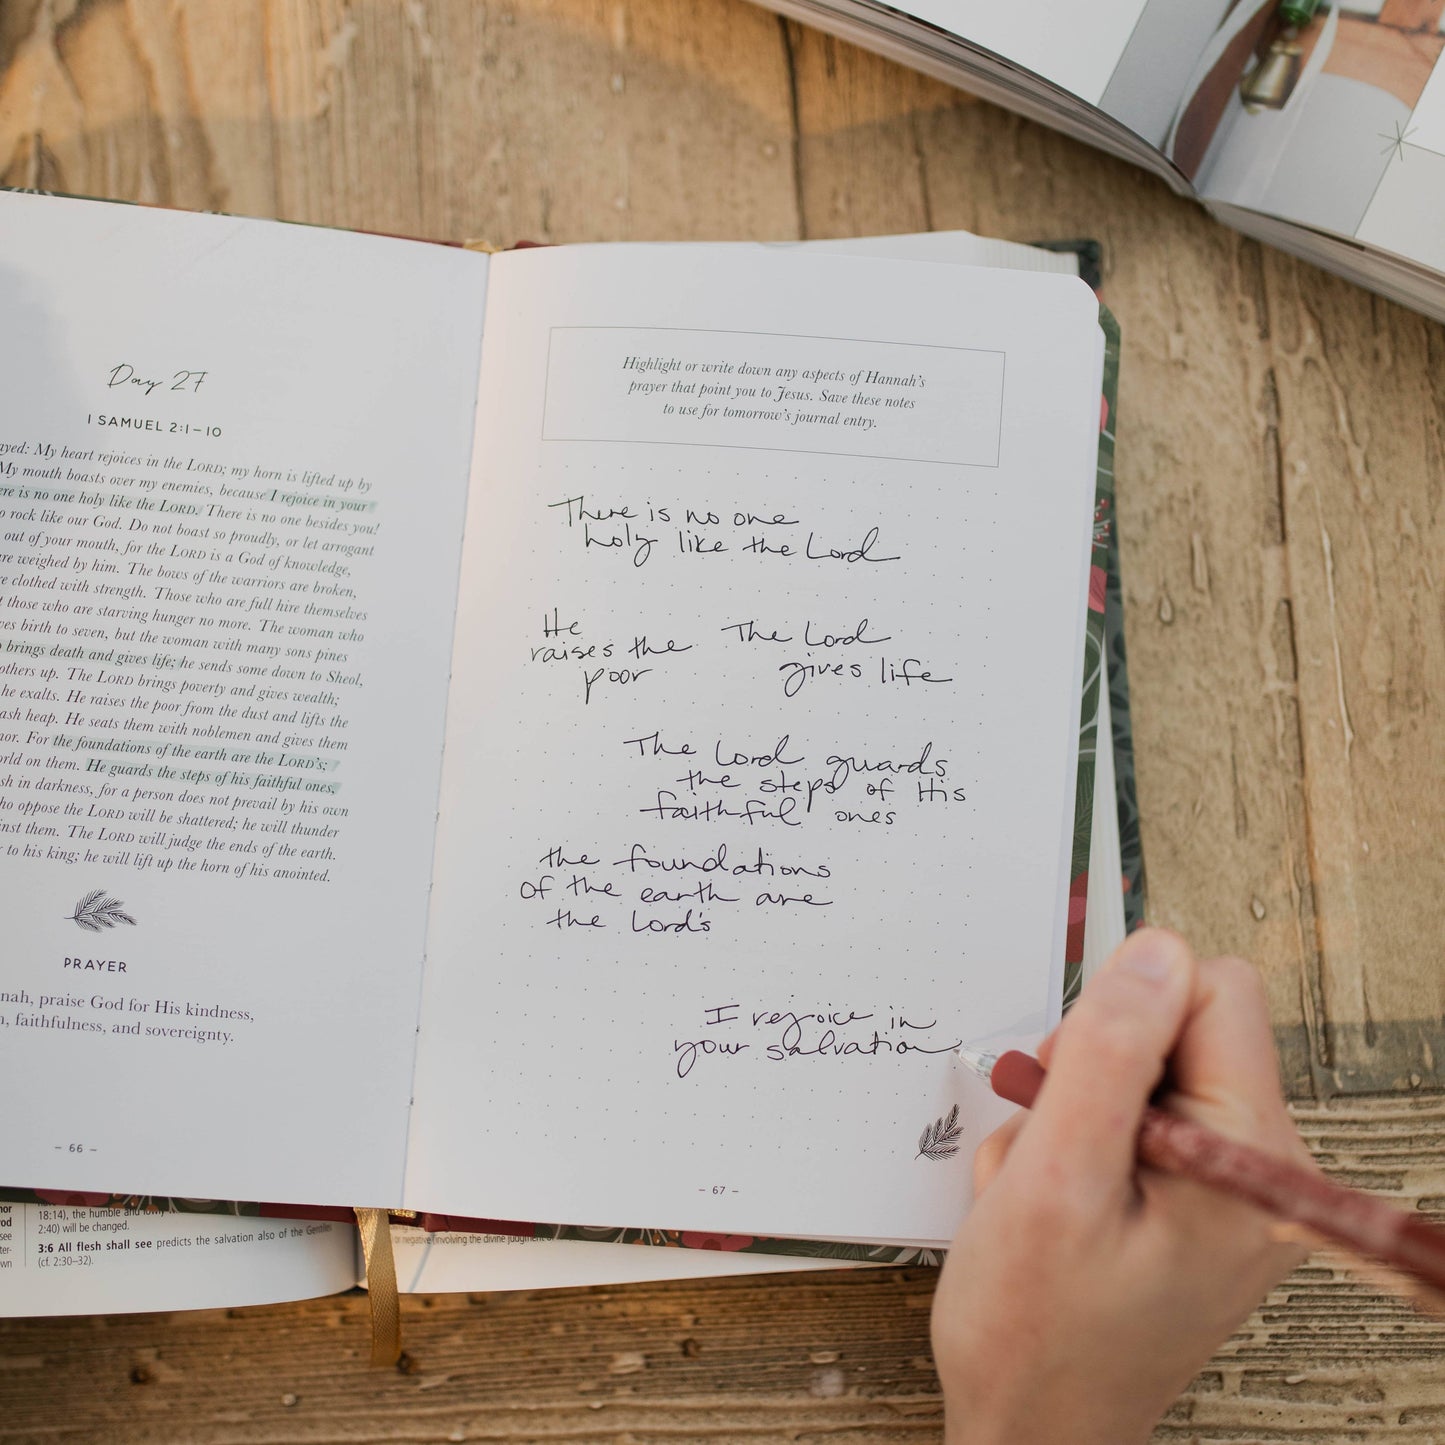 Day 27
1 SAMUEL 2:1–10
ayed: My heart rejoices in the LORD; my horn is lifted up by
My mouth boasts over my enemies, because I rejoice in your
ere is no one holy like the LORD. There is no one besides you!
o rock like our God. Do not boast so proudly, or let arrogant
out of your mouth, for the LORD is a God of knowledge,
are weighed by him. The bows of the warriors are broken,
re clothed with strength. Those who are full hire themselves
t those who are starving hunger no more. The woman who
ves birth to seven, but the woman with many sons pines
brings death and gives life; he sends some down to Sheol,
others up. The LORD brings poverty and gives wealth;
he exalts. He raises the poor from the dust and lifts the
ash heap. He seats them with noblemen and gives them
nor. For the foundations of the earth are the LORD's;
orld on them. He guards the steps of his faithful ones,
sh in darkness, for a person does not prevail by his own
ho oppose the LORD will be shattered; he will thunder
inst them. The LORD will judge the ends of the earth.
to his king; he will lift up the horn of his anointed.
PRAYER
nah, praise God for His kindness,
, faithfulness, and sovereignty.
– 66 –
Highlight or write down any aspects of Hannah's
prayer that point you to Jesus. Save these notes
to use for tomorrow's journal entry.
There is no one
holy like the Lord
He
raises the
poor
The Lord
gives life
The Lord guards
the steps of His
faithful ones
the foundations
of the earth are
the Lord's
I rejoice in
your salvation
– 67 –
18:14), the humble and lowly
2:40) will be changed.
3:6 All flesh shall see predicts the salvation also of the Gentiles
(cf. 2:30–32).
or negative (involving the divine judgment